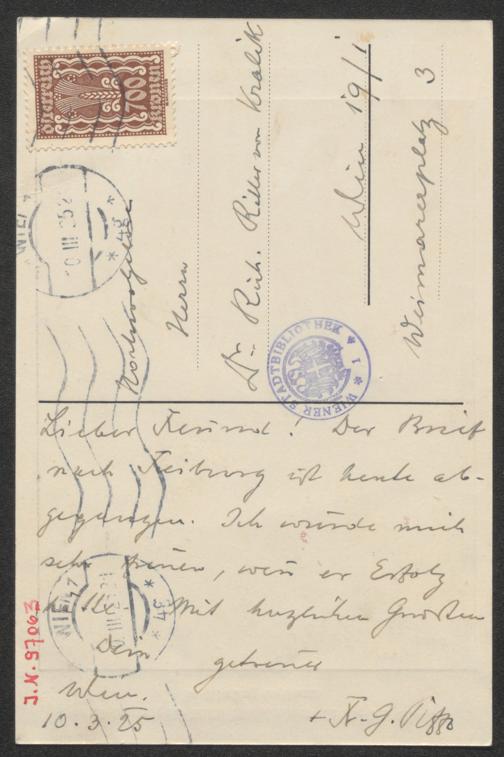 Österreich
700
Kronen
Hochwolgeb.
Herrn
Dr. Rich. Ritter von Kralik
Wien 19/1
Weimarerplatz 3
WIENER STADTBIBLIOTHEK * 1 *
Lieber Freund! Der Brief
nach Freiburg ist heute ab-
gegangen. Ich würde mich
sehr freuen, wen er Erfolg
hätte. Mit herzlichen Grüßen
Dein getreuer
Wien.
10.3.25
+ F. G. Piffl
J.N. 97063